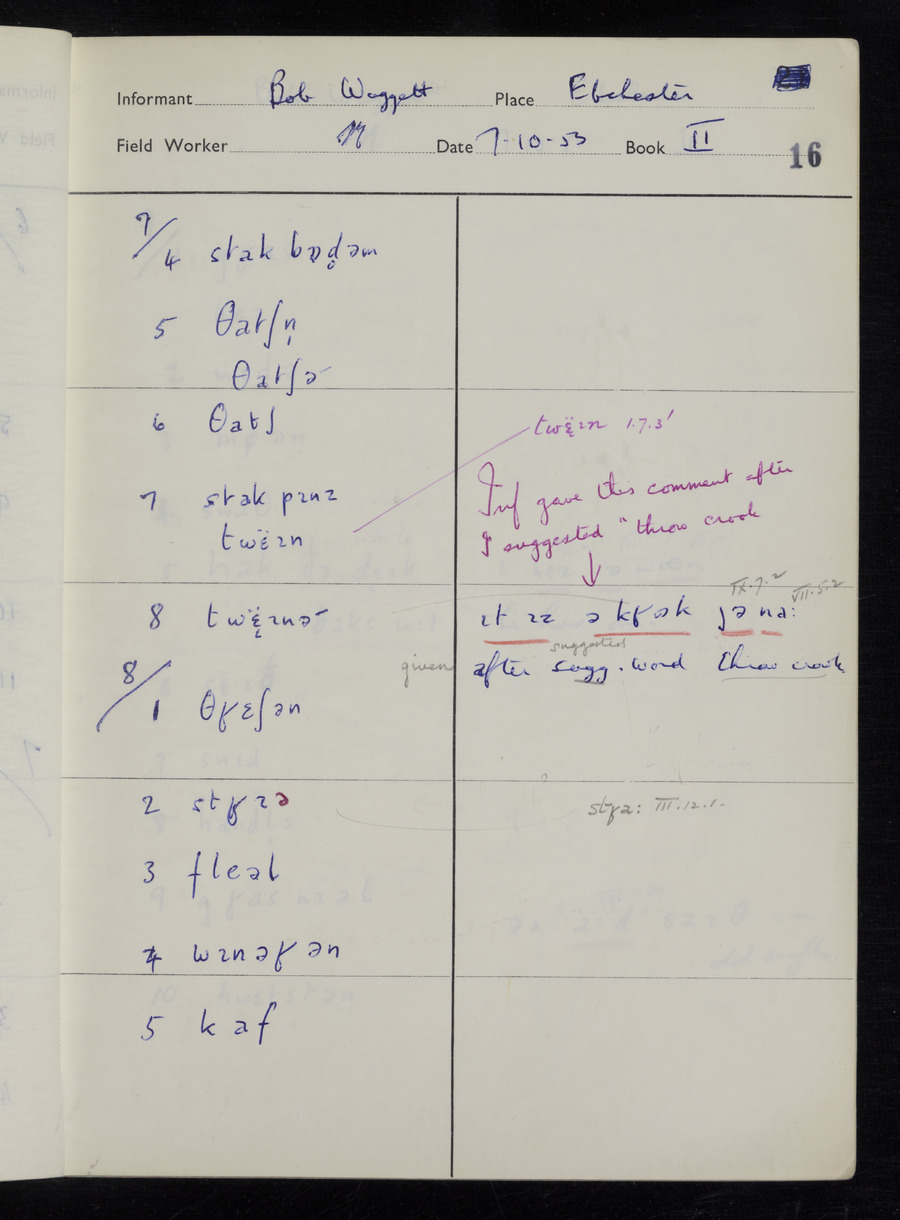 Informant Bob Waggott Place Ebchester
Field Worker Date 7-10-53 Book II
16
7/4 stak bɒd̥əm
5 θatʃn̩
θatʃə
6 θatʃ
7 stak pɪnz
twɛ̈ɪn
8 twɛ̈ɪnə
8/1 θʁɛʃən
2 stʁɪə
3 fleəl
4 wɪnəʁən
5 kaf
twɛ̈ɪn 1.7.3'
Inf gave this comment after
I suggested "throw crook
IX.9.2 VII.5.2
ɪt ɪz ə kʁək jə naː
suggested
given after sugg. word throw crook
stʁaː III.12.1.